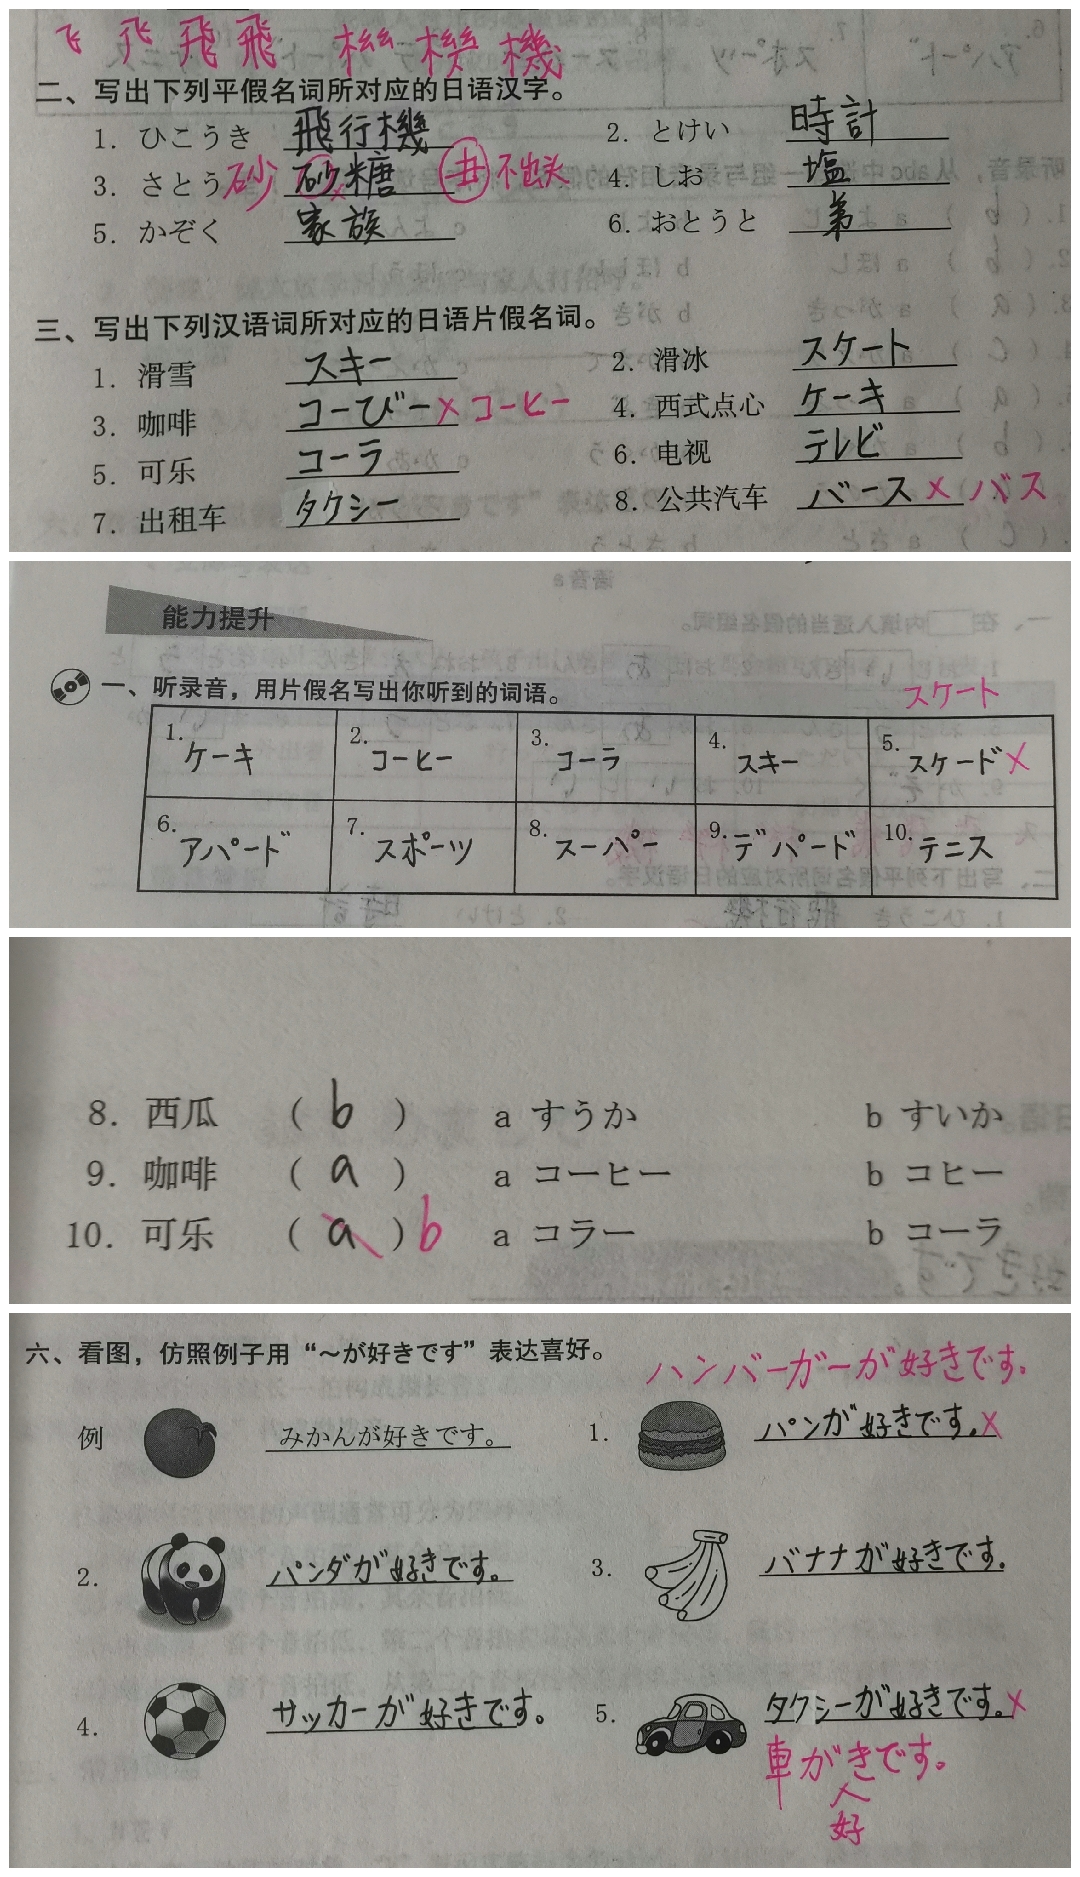 飞 飛 飛 機 機
二、写出下列平假名词所对应的日语汉字。
1. ひこうき 飛行機 2. とけい 時計
3. さとう 砂 砂糖 x 不出头 4. しお 塩
5. かぞく 家族 6. おとうと 第
三、写出下列汉语词所对应的日语片假名词。
1. 滑雪 スキー 2. 滑冰 スケート
3. 咖啡 コーびー x コーヒー 4. 西式点心 ケーキ
5. 可乐 コーラ 6. 电视 テレビ
7. 出租车 タクシー 8. 公共汽车 バース x バス
能力提升
一、听录音，用片假名写出你听到的词语。
スケート
1. ケーキ 2. コーヒー 3. コーラ 4. スキー 5. スケード x
6. アパード 7. スポーツ 8. スーパー 9. デパード 10. テニス
8. 西瓜 ( b ) a すうか b すいか
9. 咖啡 ( a ) a コーヒー b コヒー
10. 可乐 ( a ) b a コラー b コーラ
六、看图，仿照例子用“～が好きです”表达喜好。
ハンバーガーが好きです.
例 みかんが好きです。 1. パンが好きです. x
2. パンダが好きです。 3. バナナが好きです.
4. サッカーが好きです。 5. タクシーが好きです。x
車がきです。
好